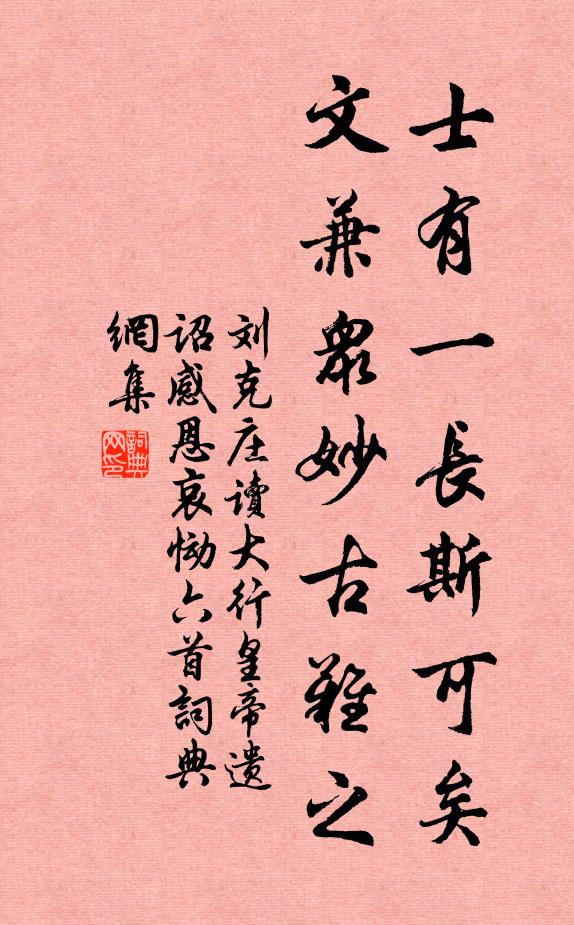 士有一長斯可矣
文兼眾妙古難之
刘克庄讀大行皇帝遗
诏感恩哀恸六首詞典
網集
詞典网印